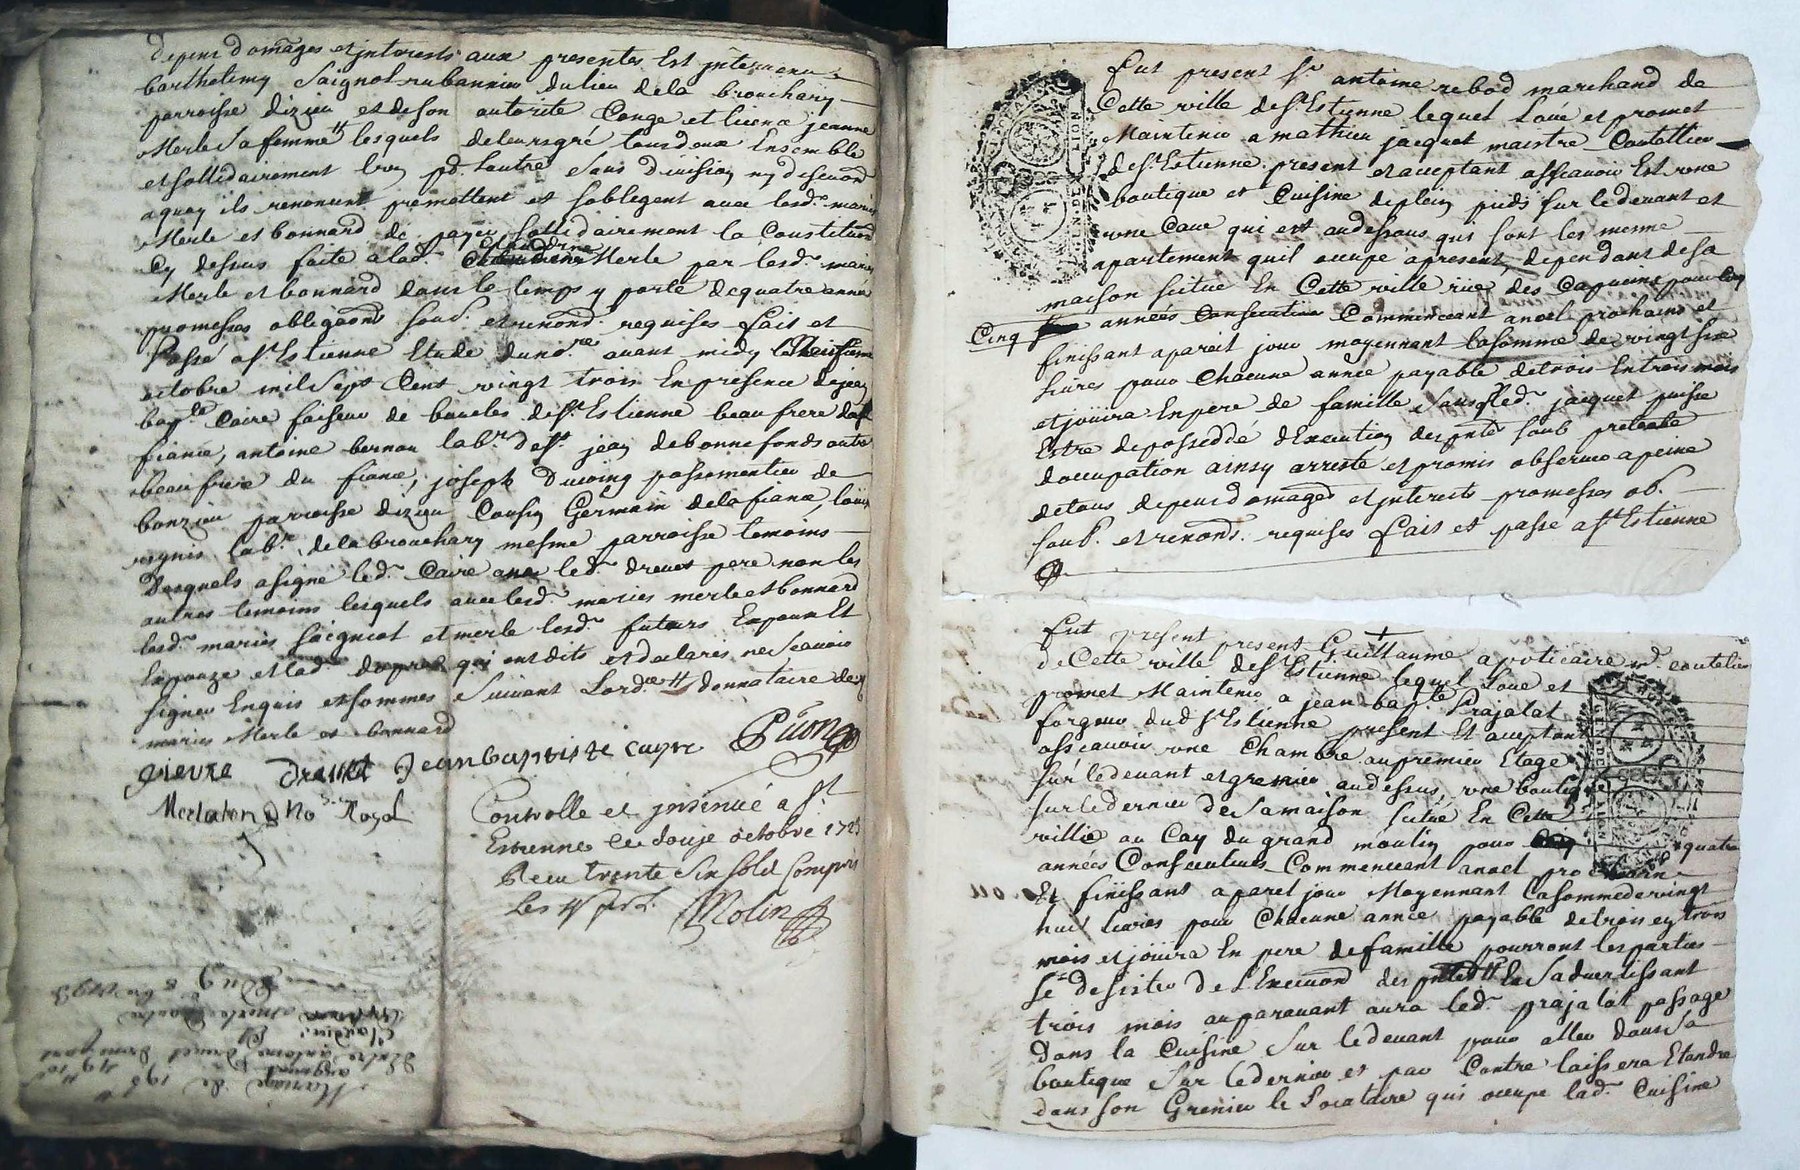 depens domages et jnterests aux presentes Est jntervenu
barthelemy Saignol rubannier du lieu de la brouchary
parroisse dizieu et de son autorité Conge et licence jeanne
Merle Sa femme lesquels de leur gré tous deux Ensemble
et sollidairement lun pd. lautre Sans division ny discution
aquoy ils renoncent promettent et soblegent avec lesd. mariés
Merle et bonnard de payer sollidairement la Constitution
Cy dessus faite a lad. Claudine Merle par lesd. mariés
Merle et bonnard dans le temps y porté de quatre années
promesses obligeons soub. et renond. requises fait et
Passé a St. Estienne Etude du no.re avant midy le
octobre mil Sept Cent vingt trois En presence de jean
bap.te Caire faiseur de boucles de St. Estienne beau frere du
fiancé, antoine bernou lab.r de St. jean de bonnefonds autre
beau frere du fiancé, joseph passementier de
bonzieu parroisse dizieu Cousin Germain de la fiancé, louis
lab.r de la brouchary mesme parroisse temoins
desquels a signé led. Caire avec led. drevet pere non les
autres temoins lesquels avec lesd. mariés merle et bonnard
lesd. mariés saignol et merle lesd. futurs Epoux Et
Epouze et lad. qui ont dits et declarés ne scavoir
signer Enquis et sommés Suivant Lord.ce donnataire desd
mariés Merle et bonnard
Drevet Jean baptiste cayre
No. Royal
Controlle et jnsinué a St.
Estienne le douze octobre 1723
Receu trente Six sols Compris
les
Molin
Mariage de 195
argent
Entre antoine drevet
Et
Claudine
merle
Du 9
8bre 1723
fut present Sr. antoine rebod marchand de
Cette ville de St. Estienne lequel Loue et promet
Maintenir a mathieu jacquet maistre Coutellier
de St. Estienne present et acceptant asscavoir Est une
boutique et Cuisine de plein pieds sur le devant et
une Cave qui est audessous qui sont les mesme
apartement quil occupe apresent, dependant de sa
maison scitue En Cette ville rüe des Capucins pour
Cinq années Consecutive Commenceant anoel prochains et
finissant a pareit jour moyennant la somme de vingt six
livres pour Chacune année payable de trois En trois mois
et joüira En pere de famille, sans q. led. jacquet puisse
Estre depossedé dExecution des pntes soub pretexte
doccupation ainsy arresté et promis observer a peine
de tous depens domages et jnterests promesses ob.
soub. et renond. requises fait et passé a St. Estienne
fut present present Guillaume apoticaire md. coutelier
de Cette ville de St. Estienne lequel Loue et
promet Maintenir a jean bap.te Prajalat
forgeur dud. St. Estienne present Et acceptant
asscavoir une Chambre au premier Etage
sur le devant et grenier audessus, une boutique
sur le dernier de Sa maison scitué En Cette
ville au Cay du grand moulin pour quatre
années Consecutives Commenceant anoel prochain
Et finissant a pareil jour Moyennant la somme de vingt
huit livres pour Chacune année payable de trois en trois
mois et joüira En pere de famille pourront les parties
se desister de lExecution des En Sadvertissant
trois mois auparavant aura led. prajalat passage
dans la Cuisine Sur le devant pour aller dans sa
boutique sur le dernier et par Contre laissera Etandre
dans son Grenier le Locataire qui occupe lad. Cuisine